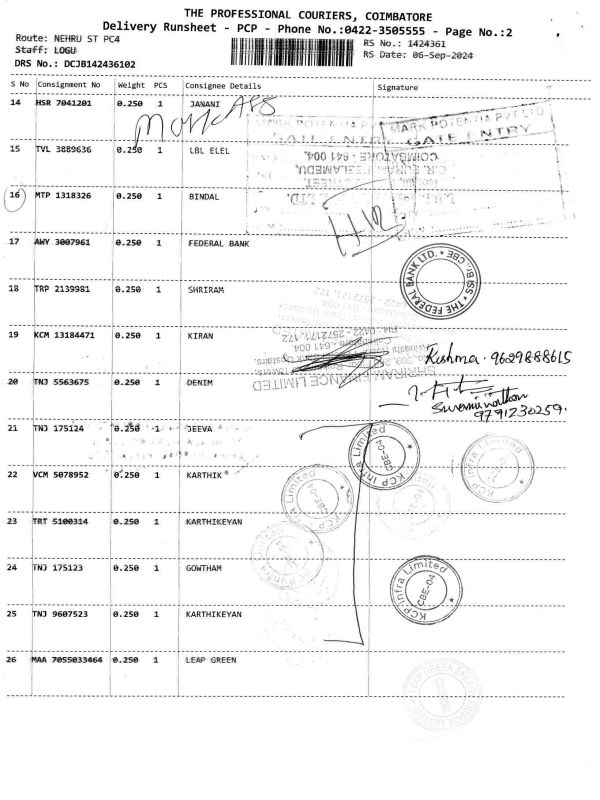 THE PROFESSIONAL COURIERS, COIMBATORE
Delivery Runsheet - PCP - Phone No.:0422-3505555 - Page No.:2
Route: NEHRU ST PC4
RS No.: 1424361
Staff: LOGU
RS Date: 06-Sep-2024
DRS No.: DCJB142436102
S No Consignment No Weight PCS Consignee Details Signature
14 HSR 7041201 0.250 1 JANANI
MARK POTENTIA PVT LTD
GATE ENTRY
15 TVL 3889636 0.250 1 LBL ELEL
COIMBATORE - 641 004.
16 MTP 1318326 0.250 1 BINDAL
17 AWY 3007961 0.250 1 FEDERAL BANK
THE FEDERAL BANK LTD. * CBE
18 TRP 2139981 0.250 1 SHRIRAM
19 KCM 13184471 0.250 1 KIRAN
Reshma. 9629888615
SHRIRAM FINANCE LIMITED
20 TNJ 5563675 0.250 1 DENIM
Swaminathan
9791230259.
21 TNJ 175124 0.250 1 JEEVA
KCP Infra Limited
CBE-04
KCP Infra Limited
22 VCM 5078952 0.250 1 KARTHIK
CBE-04
23 TRT 5100314 0.250 1 KARTHIKEYAN
24 TNJ 175123 0.250 1 GOWTHAM
KCP Infra Limited
CBE-04
25 TNJ 9607523 0.250 1 KARTHIKEYAN
26 MAA 7055033464 0.250 1 LEAP GREEN